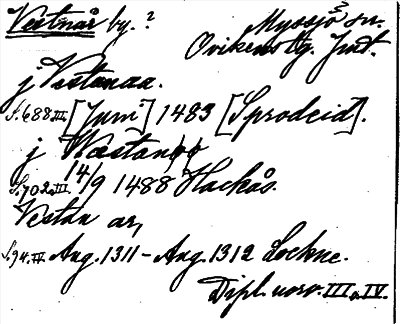 Vestnår by.? Myssjö sn.
Ovikens tg. Jmt.
j Vestanaa.
S.688.III. [Juni] 1483 [Sprodeid].
j Wæstanöö
S.702.III. 14/9 1488 Hackås.
Vestan ar,
S.94.IV. Aug. 1311 - Aug. 1312 Lockne.
Dipl. norv. III o. IV.